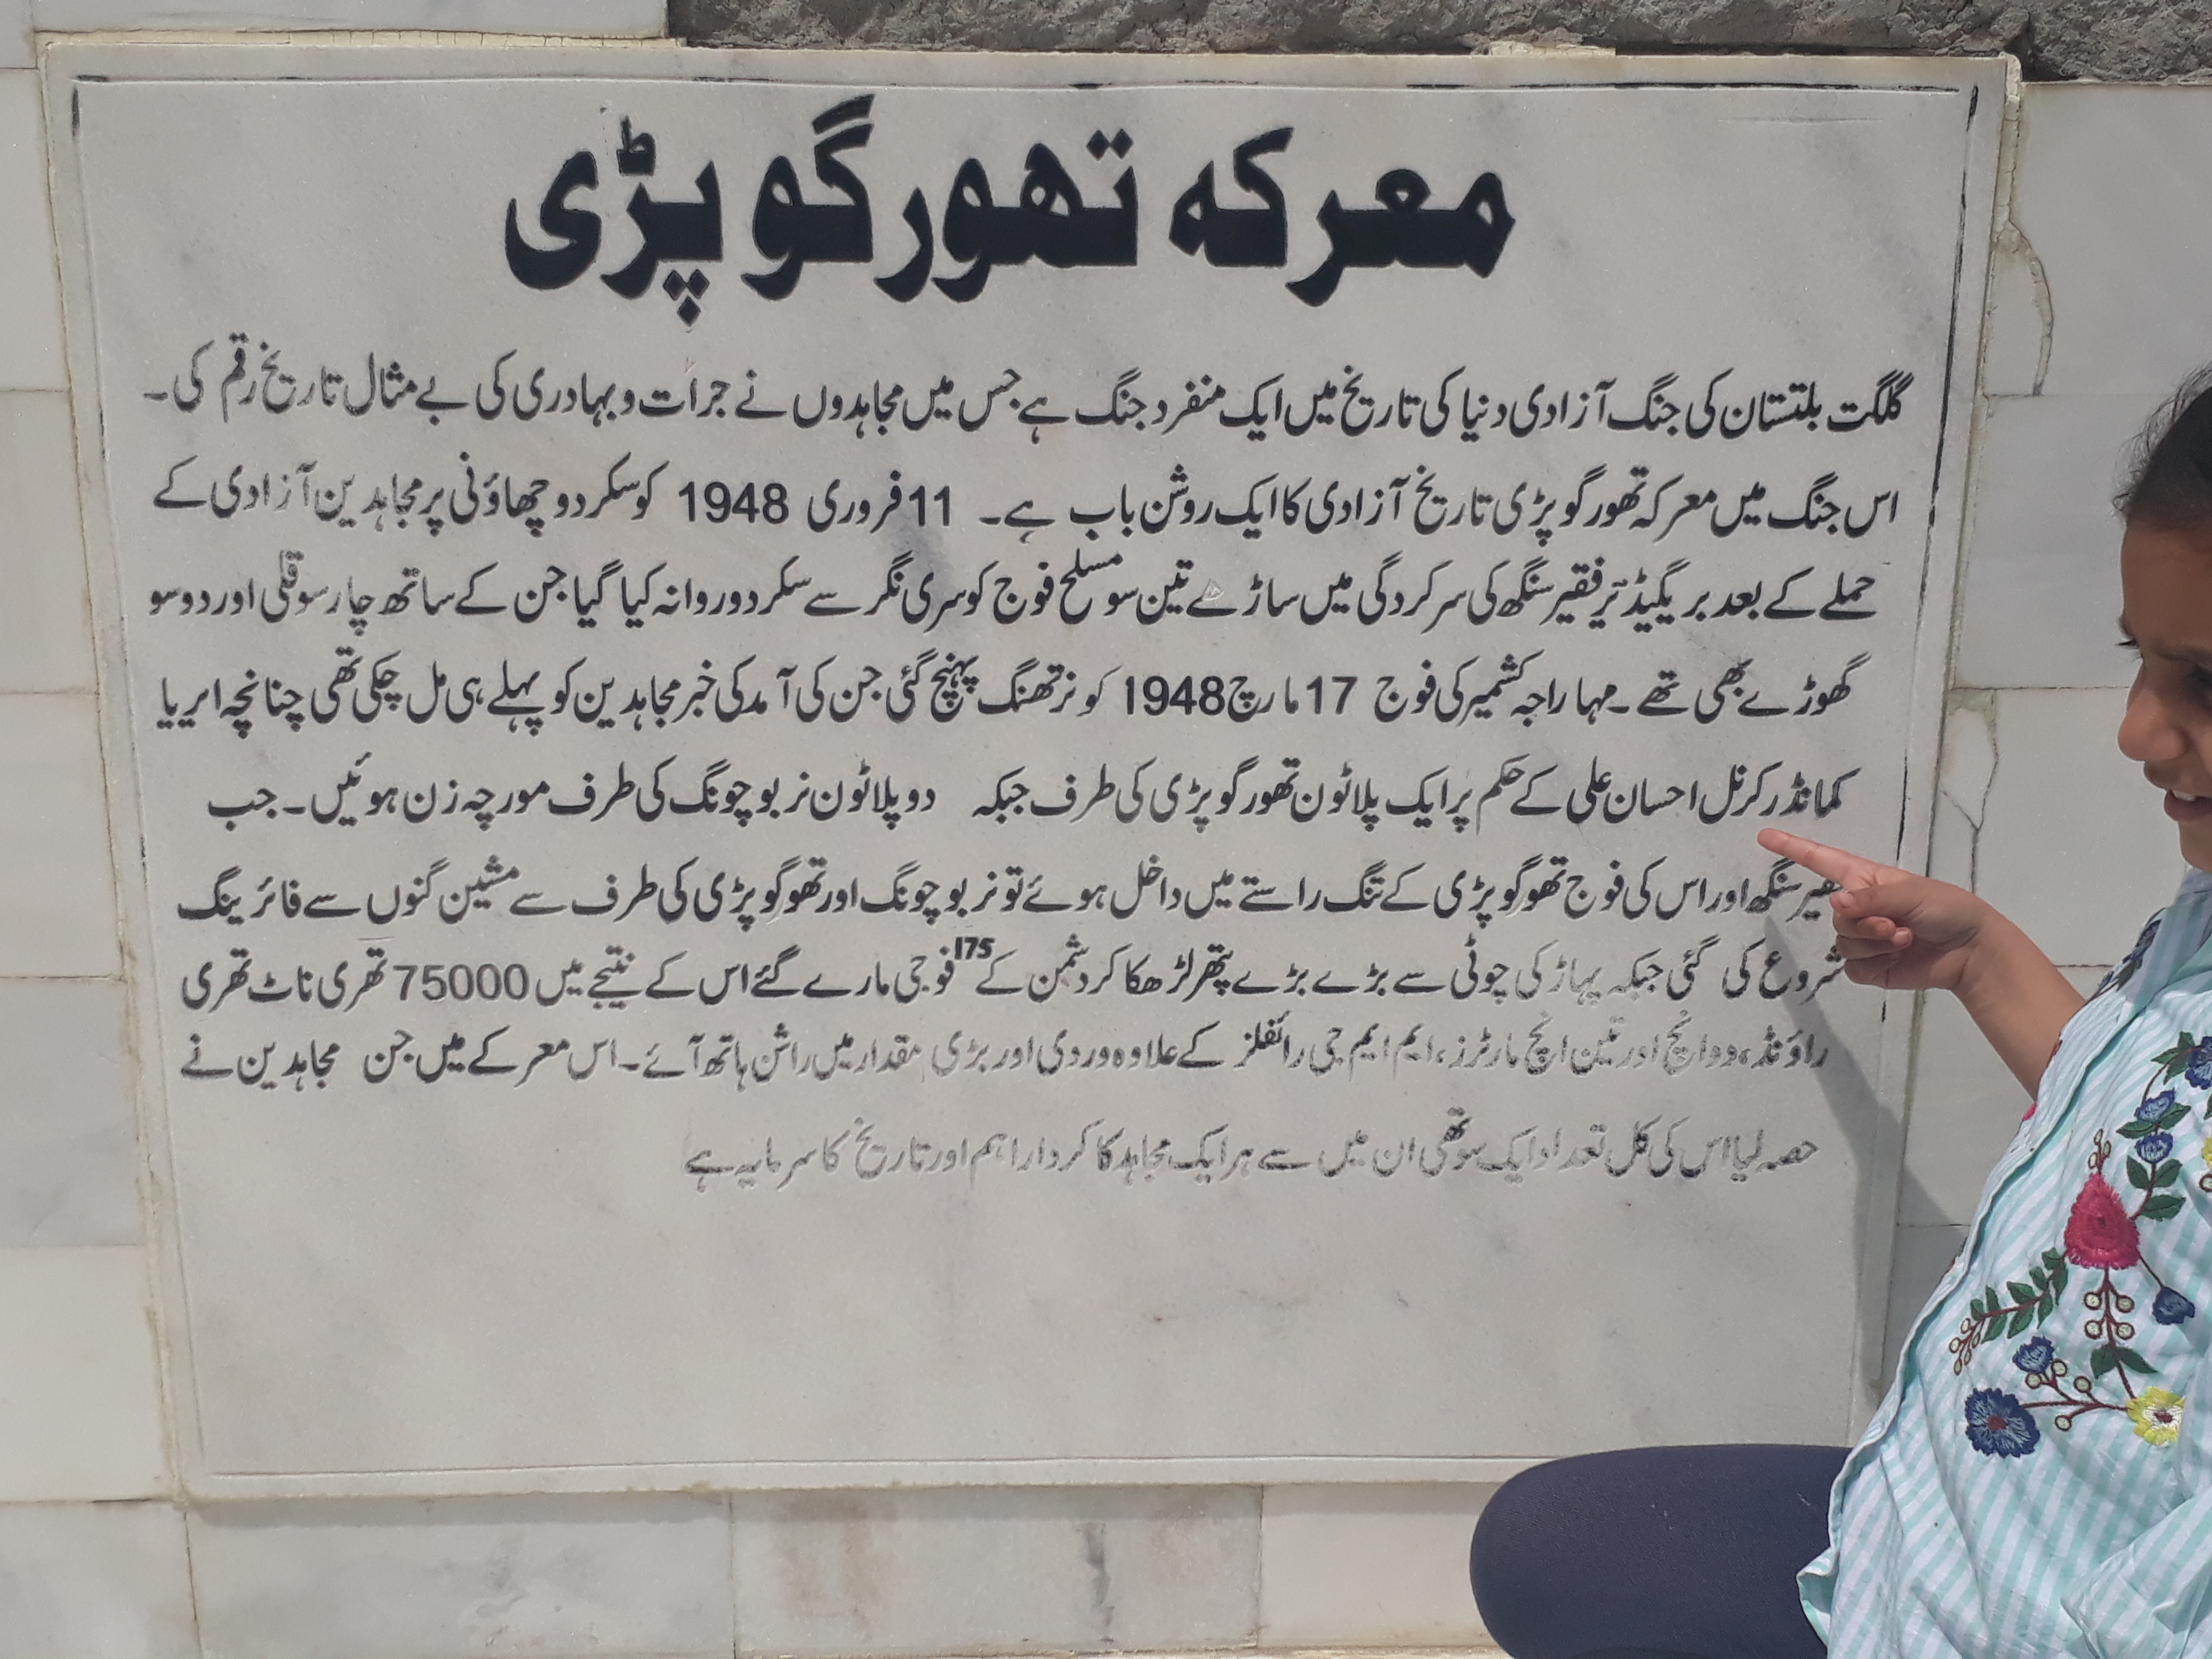 معرکہ تھورگو پڑی
گلگت بلتستان کی جنگ آزادی دنیا کی تاریخ میں ایک منفرد جنگ ہے جس میں مجاہدوں نے جرات و بہادری کی بے مثال تاریخ رقم کی۔
اس جنگ میں معرکہ تھورگو پڑی تاریخ آزادی کا ایک روشن باب ہے۔ 11 فروری 1948 کو سکردو چھاؤنی پر مجاہدین آزادی کے
حملے کے بعد بریگیڈئیر فقیر سنگھ کی سرکردگی میں ساڑے تین سو مسلح فوج کو سری نگر سے سکردو روانہ کیا گیا جن کے ساتھ چار سو قلی اور دو سو
گھوڑے بھی تھے۔ مہاراجہ کشمیر کی فوج 17 مارچ 1948 کو نرتھنگ پہنچ گئی جن کی آمد کی خبر مجاہدین کو پہلے ہی مل چکی تھی چنانچہ ایریا
کمانڈر کرنل احسان علی کے حکم پر ایک پلاٹون تھورگو پڑی کی طرف جبکہ دو پلاٹون نربوچونگ کی طرف مورچہ زن ہوئیں۔ جب
فقیر سنگھ اور اس کی فوج تھوگو پڑی کے تنگ راستے میں داخل ہوئے تو نربوچونگ اور تھوگو پڑی کی طرف سے مشین گنوں سے فائرینگ
شروع کی گئی جبکہ پہاڑ کی چوٹی سے بڑے بڑے پتھر لڑھکا کر دشمن کے 175 فوجی مارے گئے اس کے نتیجے میں 75000 تھری ناٹ تھری
راؤنڈ، دو انچ اور تین انچ مارٹرز، ایم ایم جی رائفلز کے علاوہ وردی اور بڑی مقدار میں راشن ہاتھ آئے۔ اس معرکے میں جن مجاہدین نے
حصہ لیا اس کی کل تعداد ایک سو تھی ان میں سے ہر ایک مجاہد کا کردار اہم اور تاریخ کا سرمایہ ہے